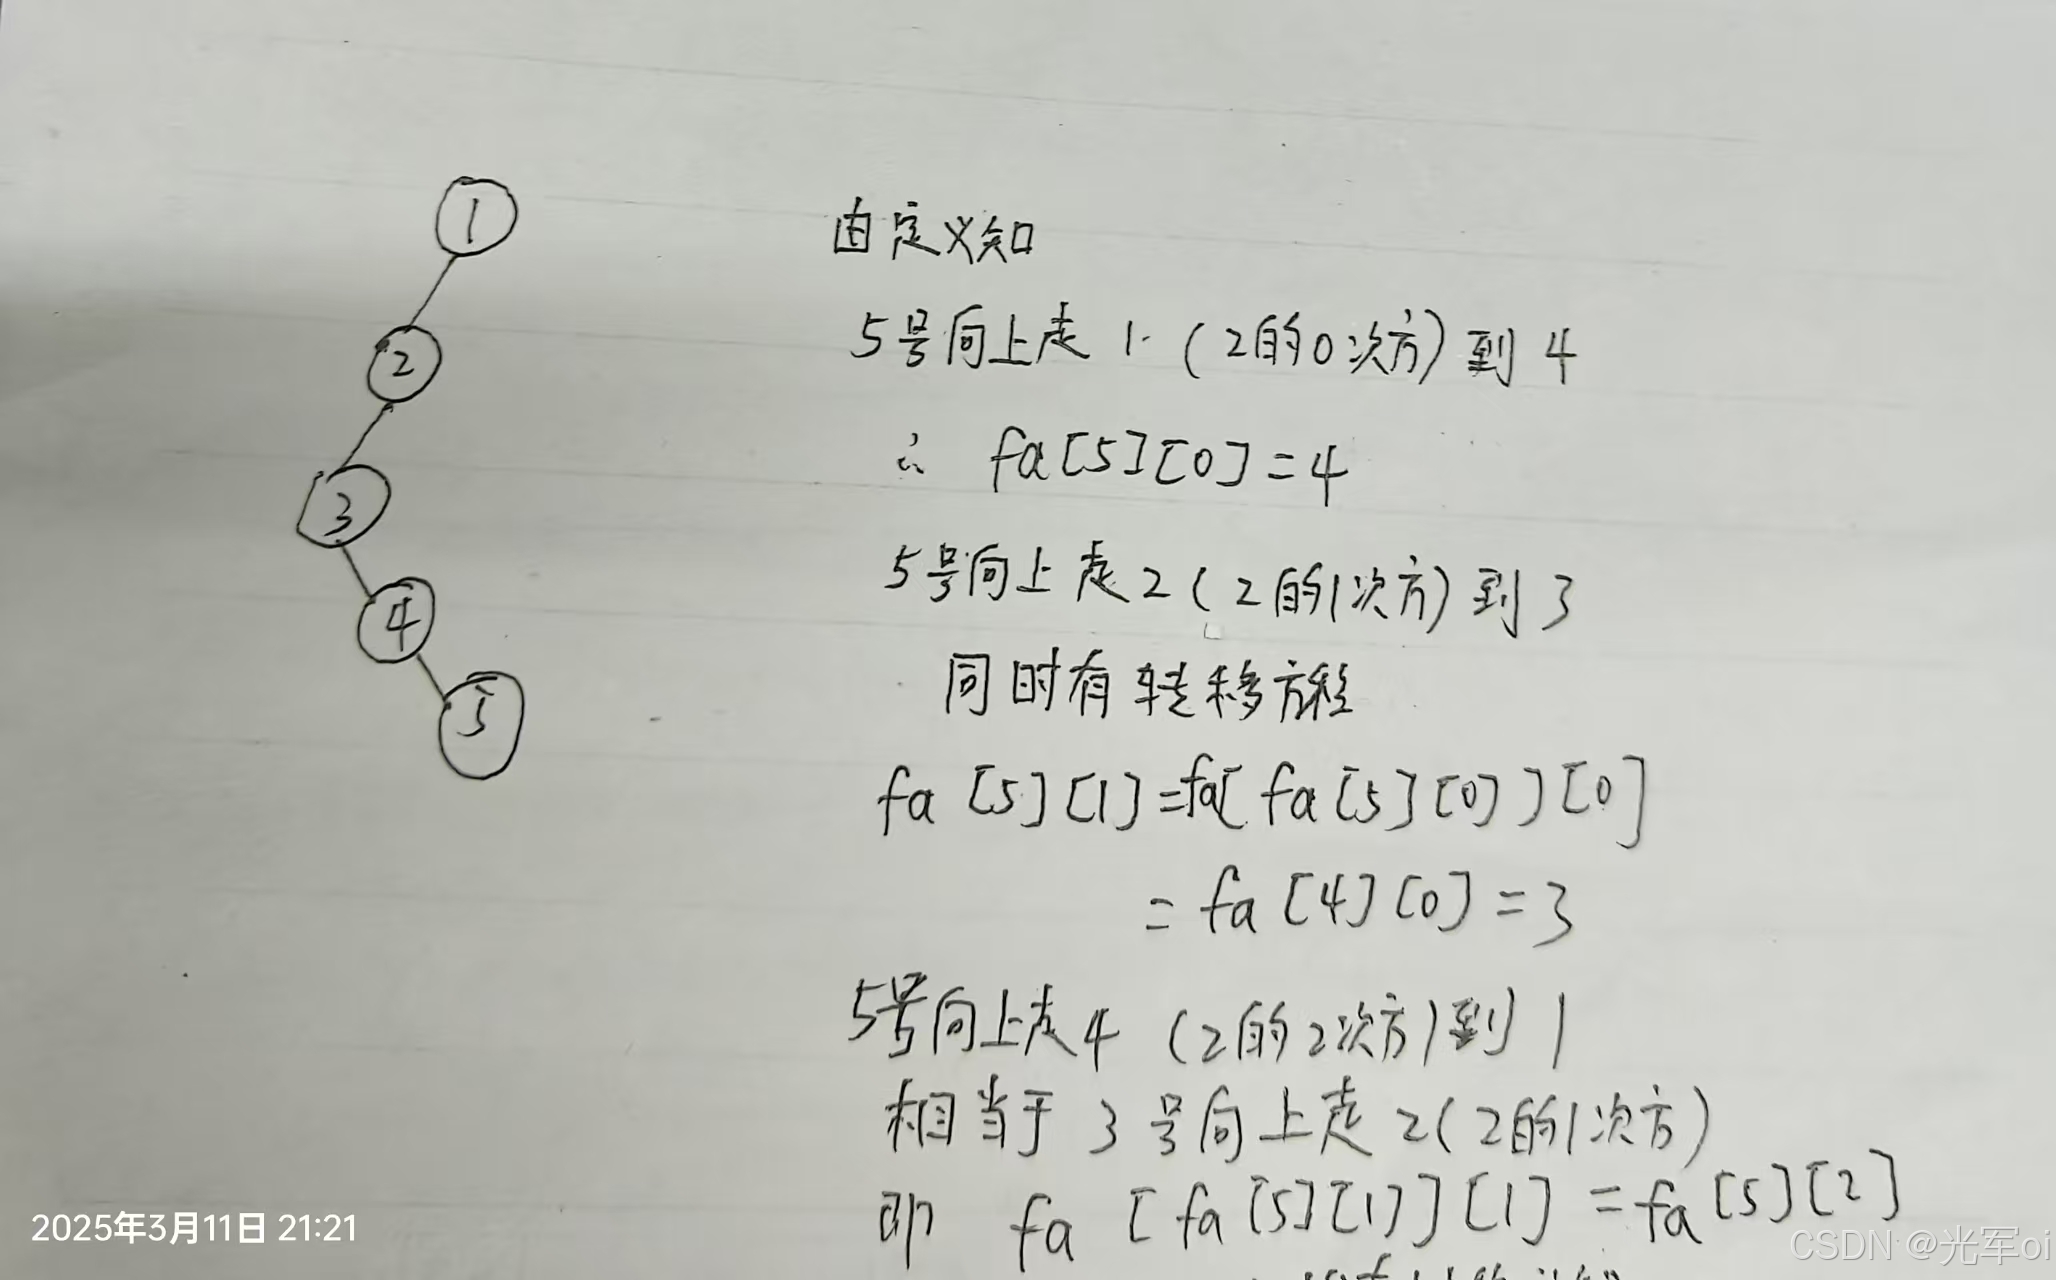 1
2
3
4
5
由定义知
5号向上走1.(2的0次方)到4
∴ fa[5][0]=4
5号向上走2(2的1次方)到3
同时有转移方程
fa[5][1]=fa[fa[5][0]][0]
=fa[4][0]=3
5号向上走4(2的2次方)到1
相当于3号向上走2(2的1次方)
即 fa[fa[5][1]][1]=fa[5][2]
2025年3月11日 21:21
CSDN @光军oi